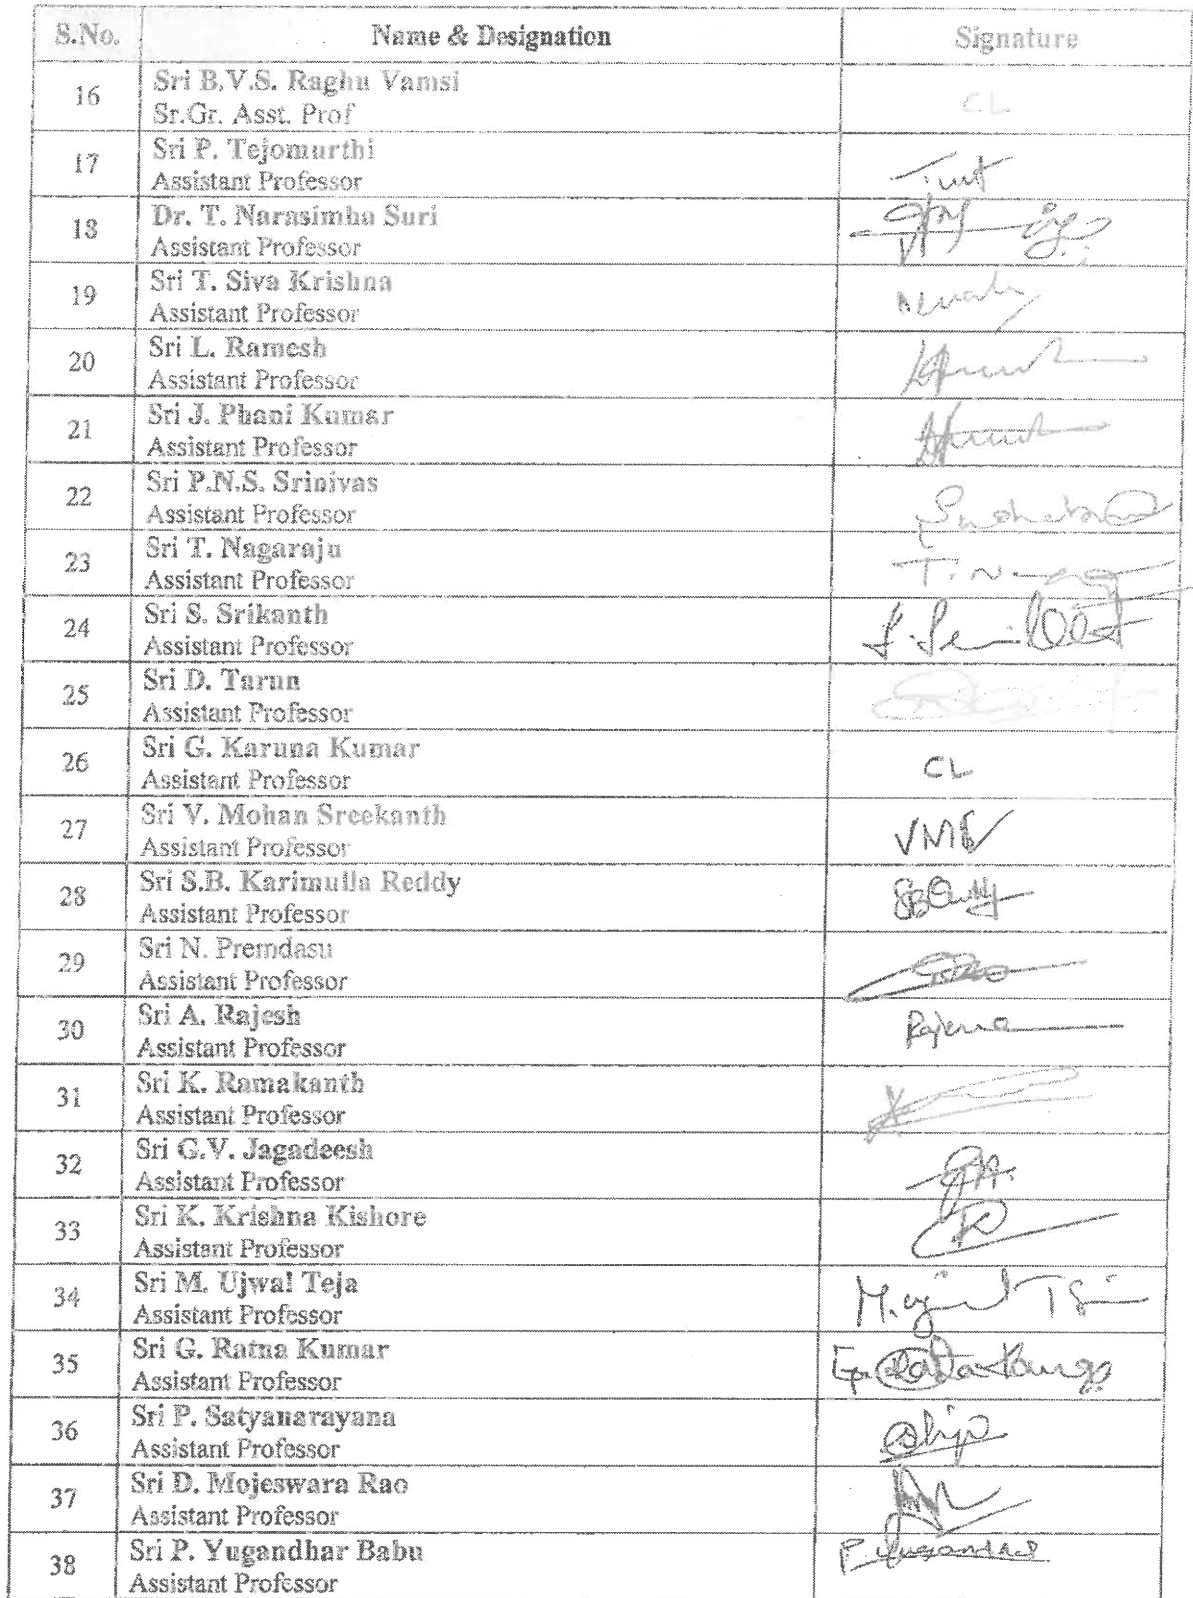 S.No. Name & Designation Signature
16 Sri B.V.S. Raghu Vamsi
Sr.Gr. Asst. Prof
CL
17 Sri P. Tejomurthi
Assistant Professor
18 Dr. T. Narasimha Suri
Assistant Professor
19 Sri T. Siva Krishna
Assistant Professor
20 Sri L. Ramesh
Assistant Professor
21 Sri J. Phani Kumar
Assistant Professor
22 Sri P.N.S. Srinivas
Assistant Professor
23 Sri T. Nagaraju
Assistant Professor
24 Sri S. Srikanth
Assistant Professor
25 Sri D. Tarun
Assistant Professor
26 Sri G. Karuna Kumar
Assistant Professor
CL
27 Sri V. Mohan Sreekanth
Assistant Professor
28 Sri S.B. Karimulla Reddy
Assistant Professor
29 Sri N. Premdasu
Assistant Professor
30 Sri A. Rajesh
Assistant Professor
31 Sri K. Ramakanth
Assistant Professor
32 Sri G.V. Jagadeesh
Assistant Professor
33 Sri K. Krishna Kishore
Assistant Professor
34 Sri M. Ujwal Teja
Assistant Professor
35 Sri G. Ratna Kumar
Assistant Professor
36 Sri P. Satyanarayana
Assistant Professor
37 Sri D. Mojeswara Rao
Assistant Professor
38 Sri P. Yugandhar Babu
Assistant Professor